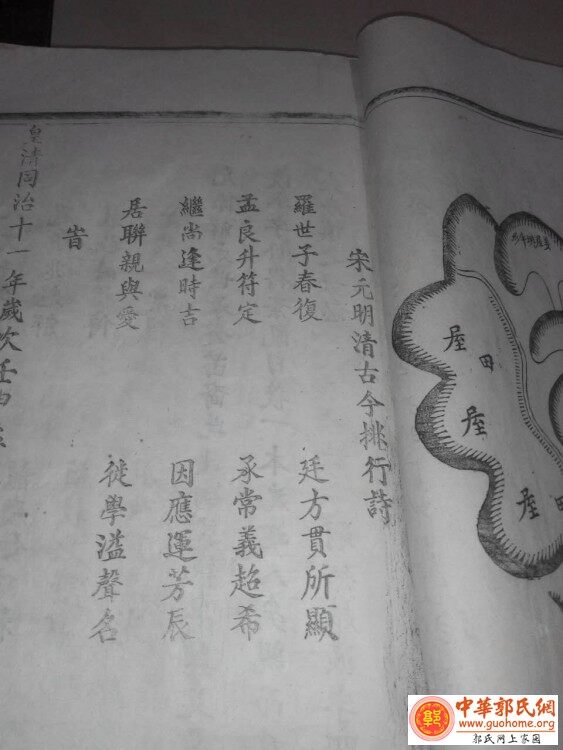 宋元明清古今排行詩
羅世子春復　廷方貫所顯
孟良升符定　承常義超希
繼尚逢時吉　因應運芳辰
居聯親與愛　從學溢聲名
旹
皇清同治十一年歲次壬申
屋
田
屋
屋
田
郭
中華郭氏網
www.guohome.org
郭氏网上家园